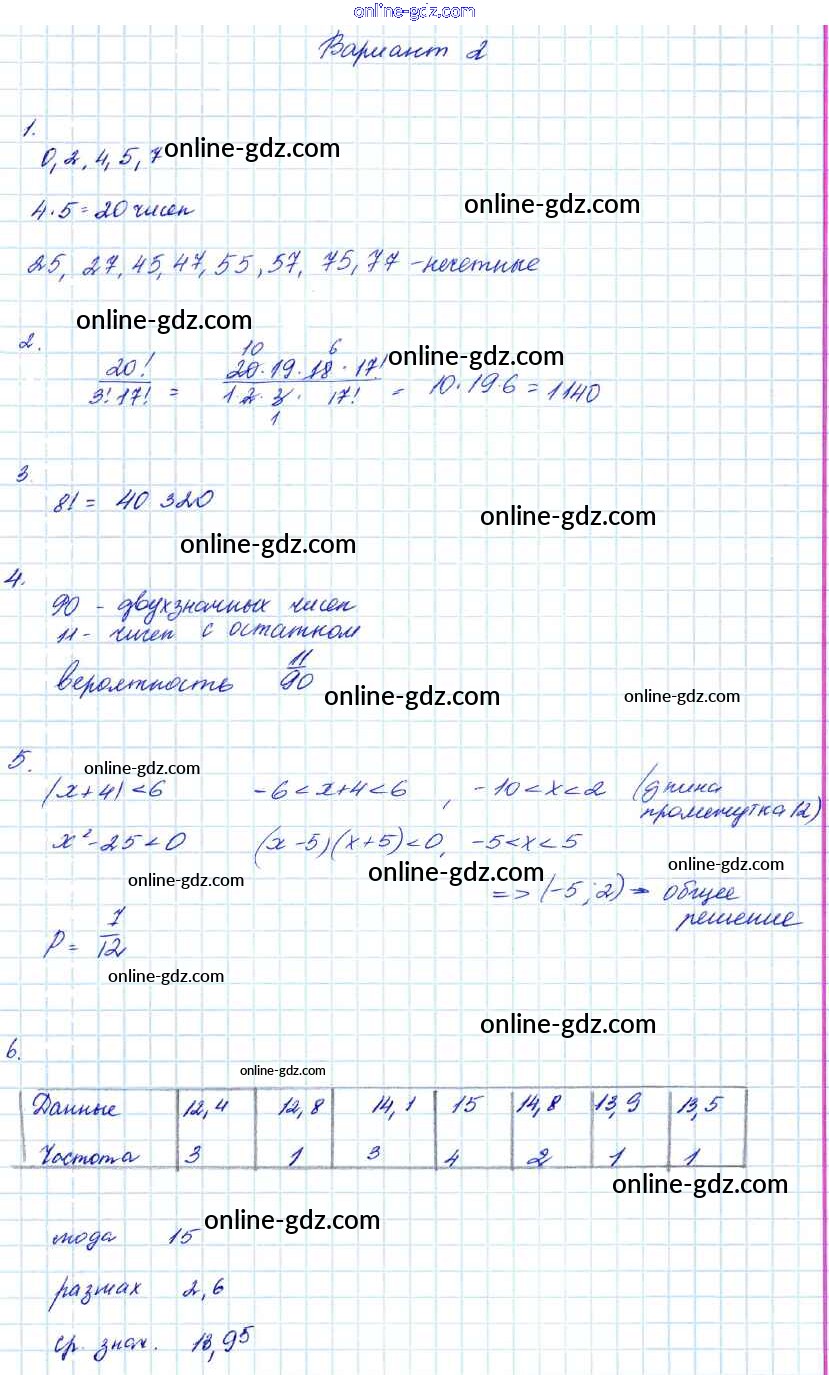 online-gdz.com
Вариант 2
1.
0, 2, 4, 5, 7 online-gdz.com
4·5=20 чисел online-gdz.com
25, 27, 45, 47, 55, 57, 75, 77 - нечетные
online-gdz.com
2.
10 6
20! 20·19·18·17! online-gdz.com
3!17! = 1·2·3· 17! = 10·19·6=1140
1
3.
8! = 40 320 online-gdz.com
online-gdz.com
4.
90 - двухзначных чисел
11 - чисел с остатком
вероятность 11/90 online-gdz.com online-gdz.com
5. online-gdz.com
|x+4|<6 -6<x+4<6, -10<x<2 (длина
промежутка 12)
x²-25<0 (x-5)(x+5)<0, -5<x<5
online-gdz.com online-gdz.com online-gdz.com
=> (-5;2) - общее
решение
P = 7/12
online-gdz.com
online-gdz.com
6.
online-gdz.com
Данные 12,4 12,8 14,1 15 14,8 13,9 13,5
Частота 3 1 3 4 2 1 1
online-gdz.com
мода 15 online-gdz.com
размах 2,6
ср. знач. 13,95